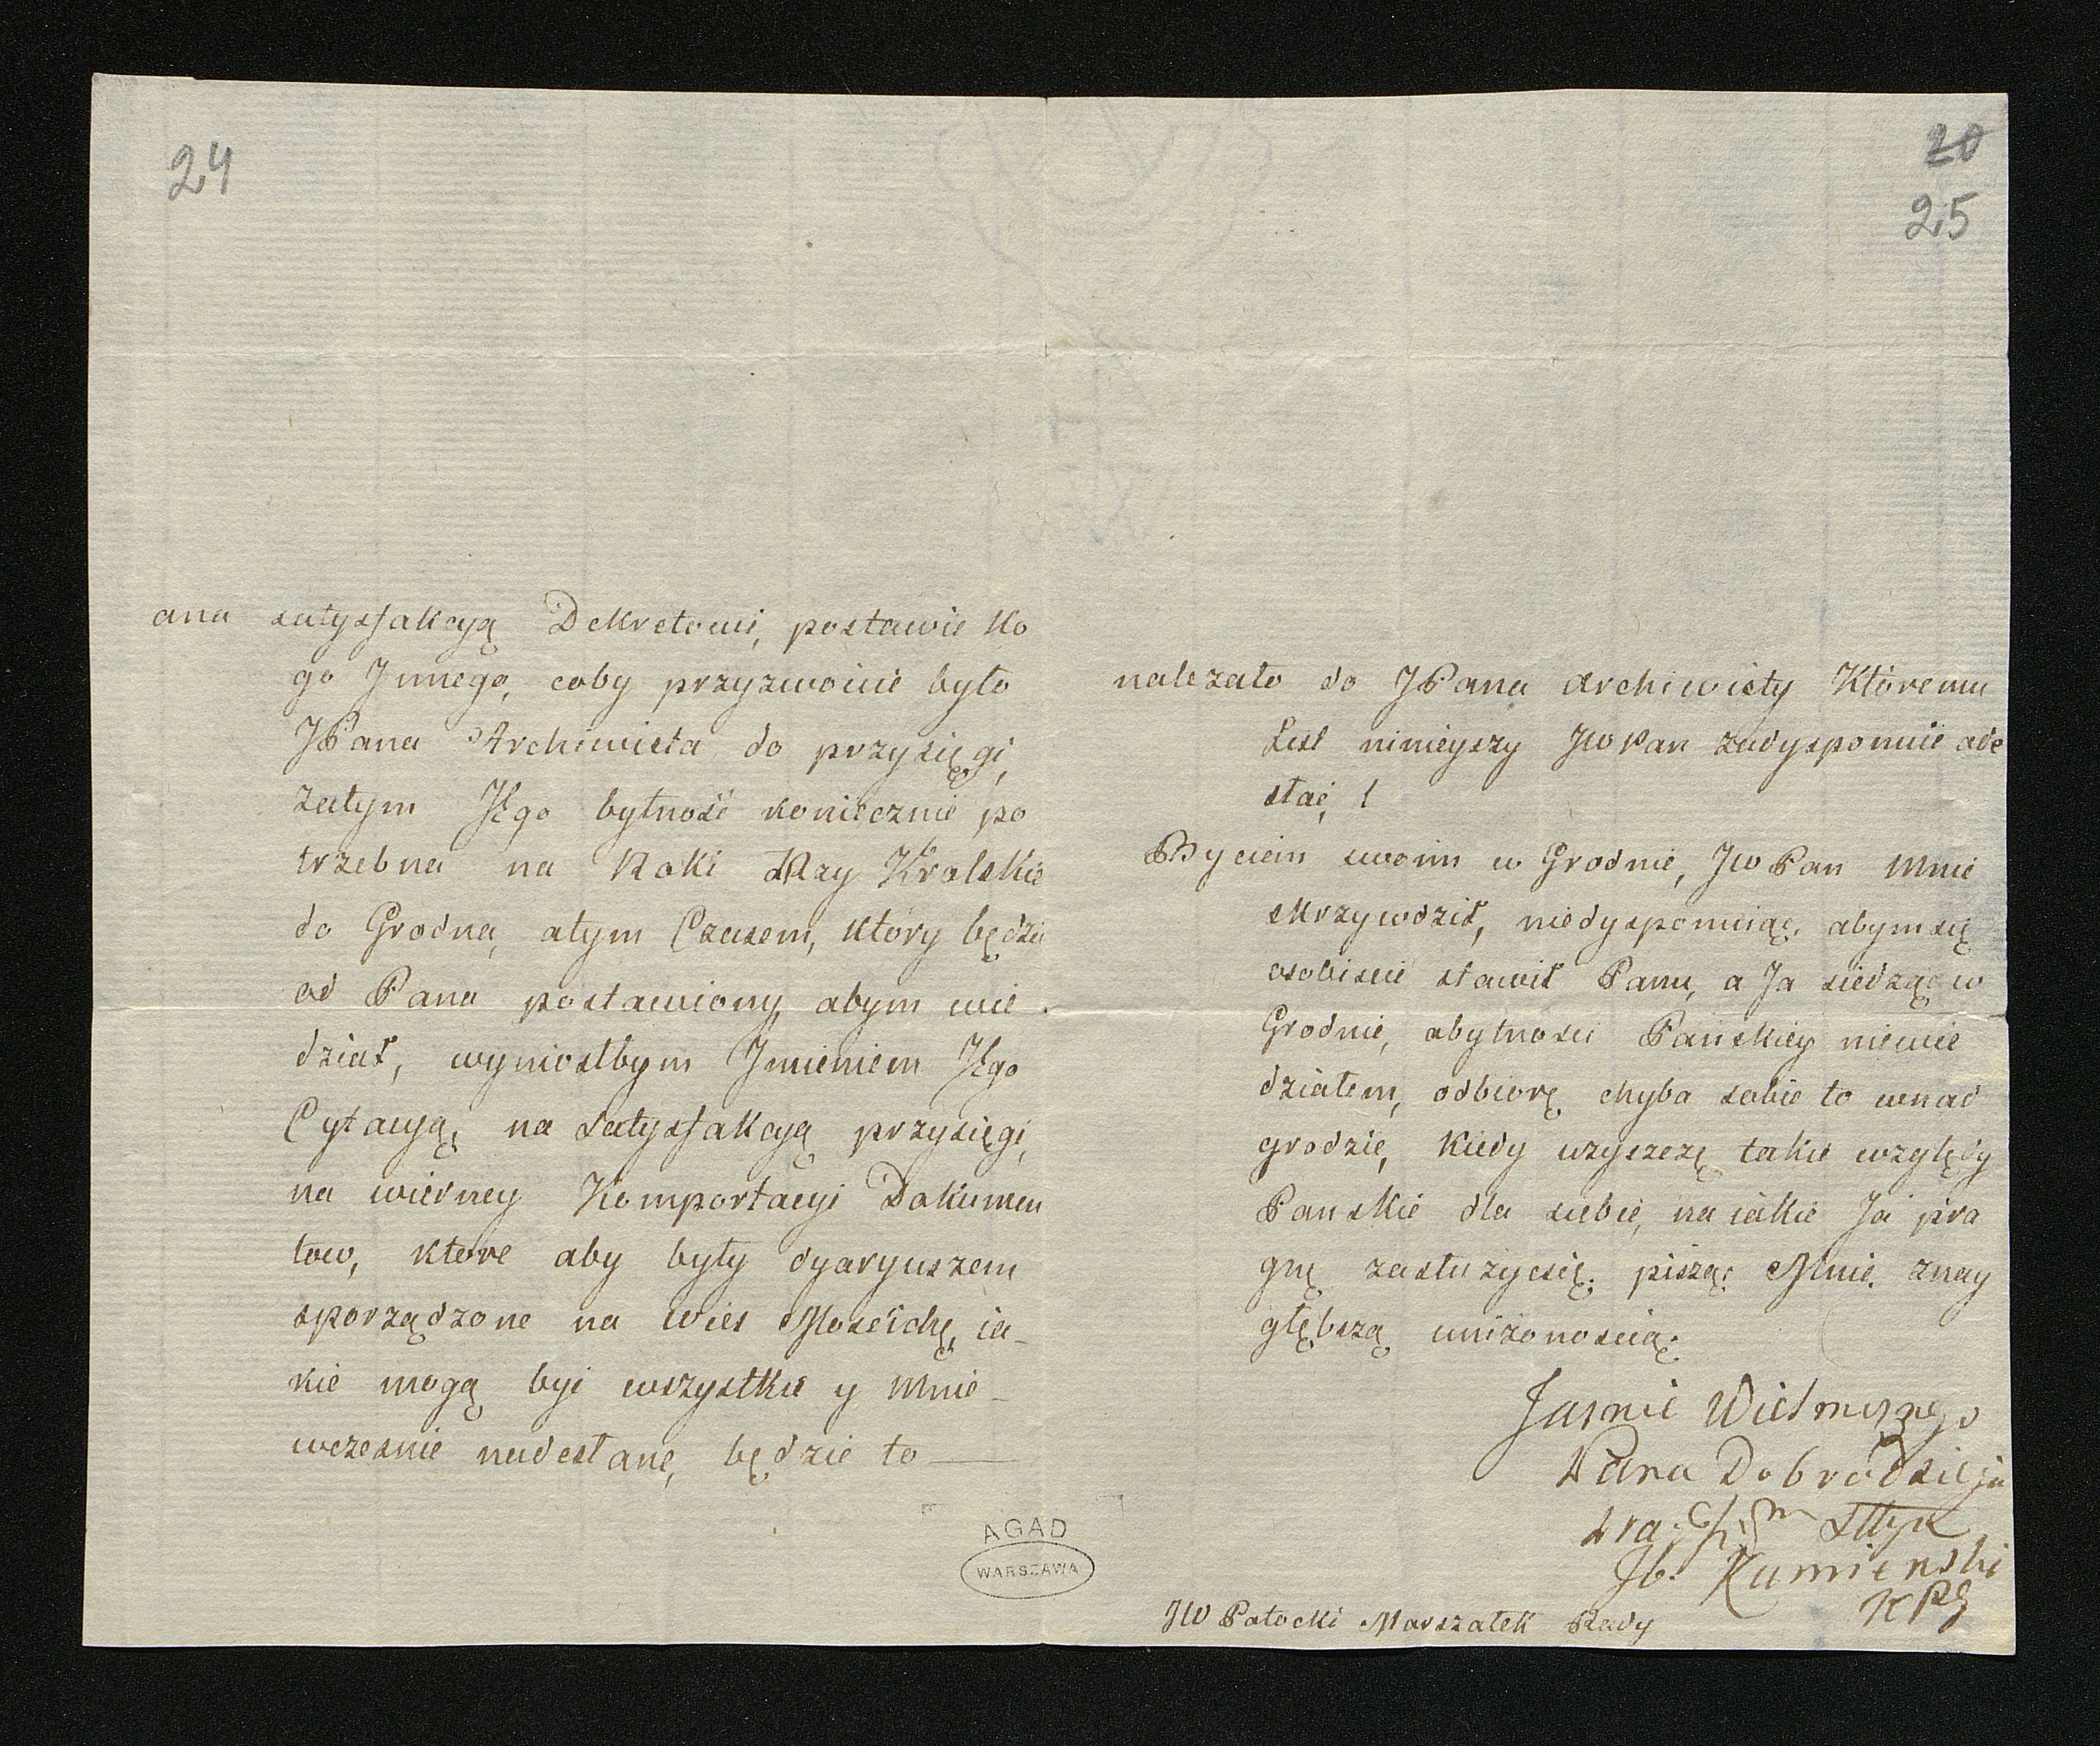 24
ana satysfakcyą Dekretowi, postawić ko
go Innego, coby przyzwoicie było
JPana Archiwista do przysięgi,
zatym JEgo bytność koniecznie po
trzebna na Roki Trzy Krolskie
do Grodna, atym Czasem, ktory będzie
od Pana postawiony, abym wie
dział, wyniosłbym Imieniem JEgo
Cytacyą, na satysfakcyą przysięgi,
na wierney Komportacyi Dokumen
tow, ktore aby były dyaryuszem
sporządzone na wies Moscichę, ia_
kie mogą być wszystkie y mnie_
wczesnie nadesłane, będzie to ___
AGAD
WARSZAWA
20
25
należało do JPana Archiwisty Któremu
List ninieyszy JWPan zadysponuie ode
słać,!
Byciem swoim w Grodnie, JWPan mnie
skrzywdził, niedysponuiąc, abymsię
osobiscie stawił Panu, a Ja siedząc w
Grodnie, obytnosci Panskiey niewie
działem, odbiorę chyba sobie to wnad
grodzie, kiedy uzyszczę takie względy
Panskie dla siebie, na iakie Ja pra
gnę zasłużycsię. pisząc Mnie. znay
głębszą uniżonoscią.
Jasnie Wielmożnego
Pana Dobrodzieja
Sługa
Jb: Kamienski
KPG
JW Potocki Marszałek Rady